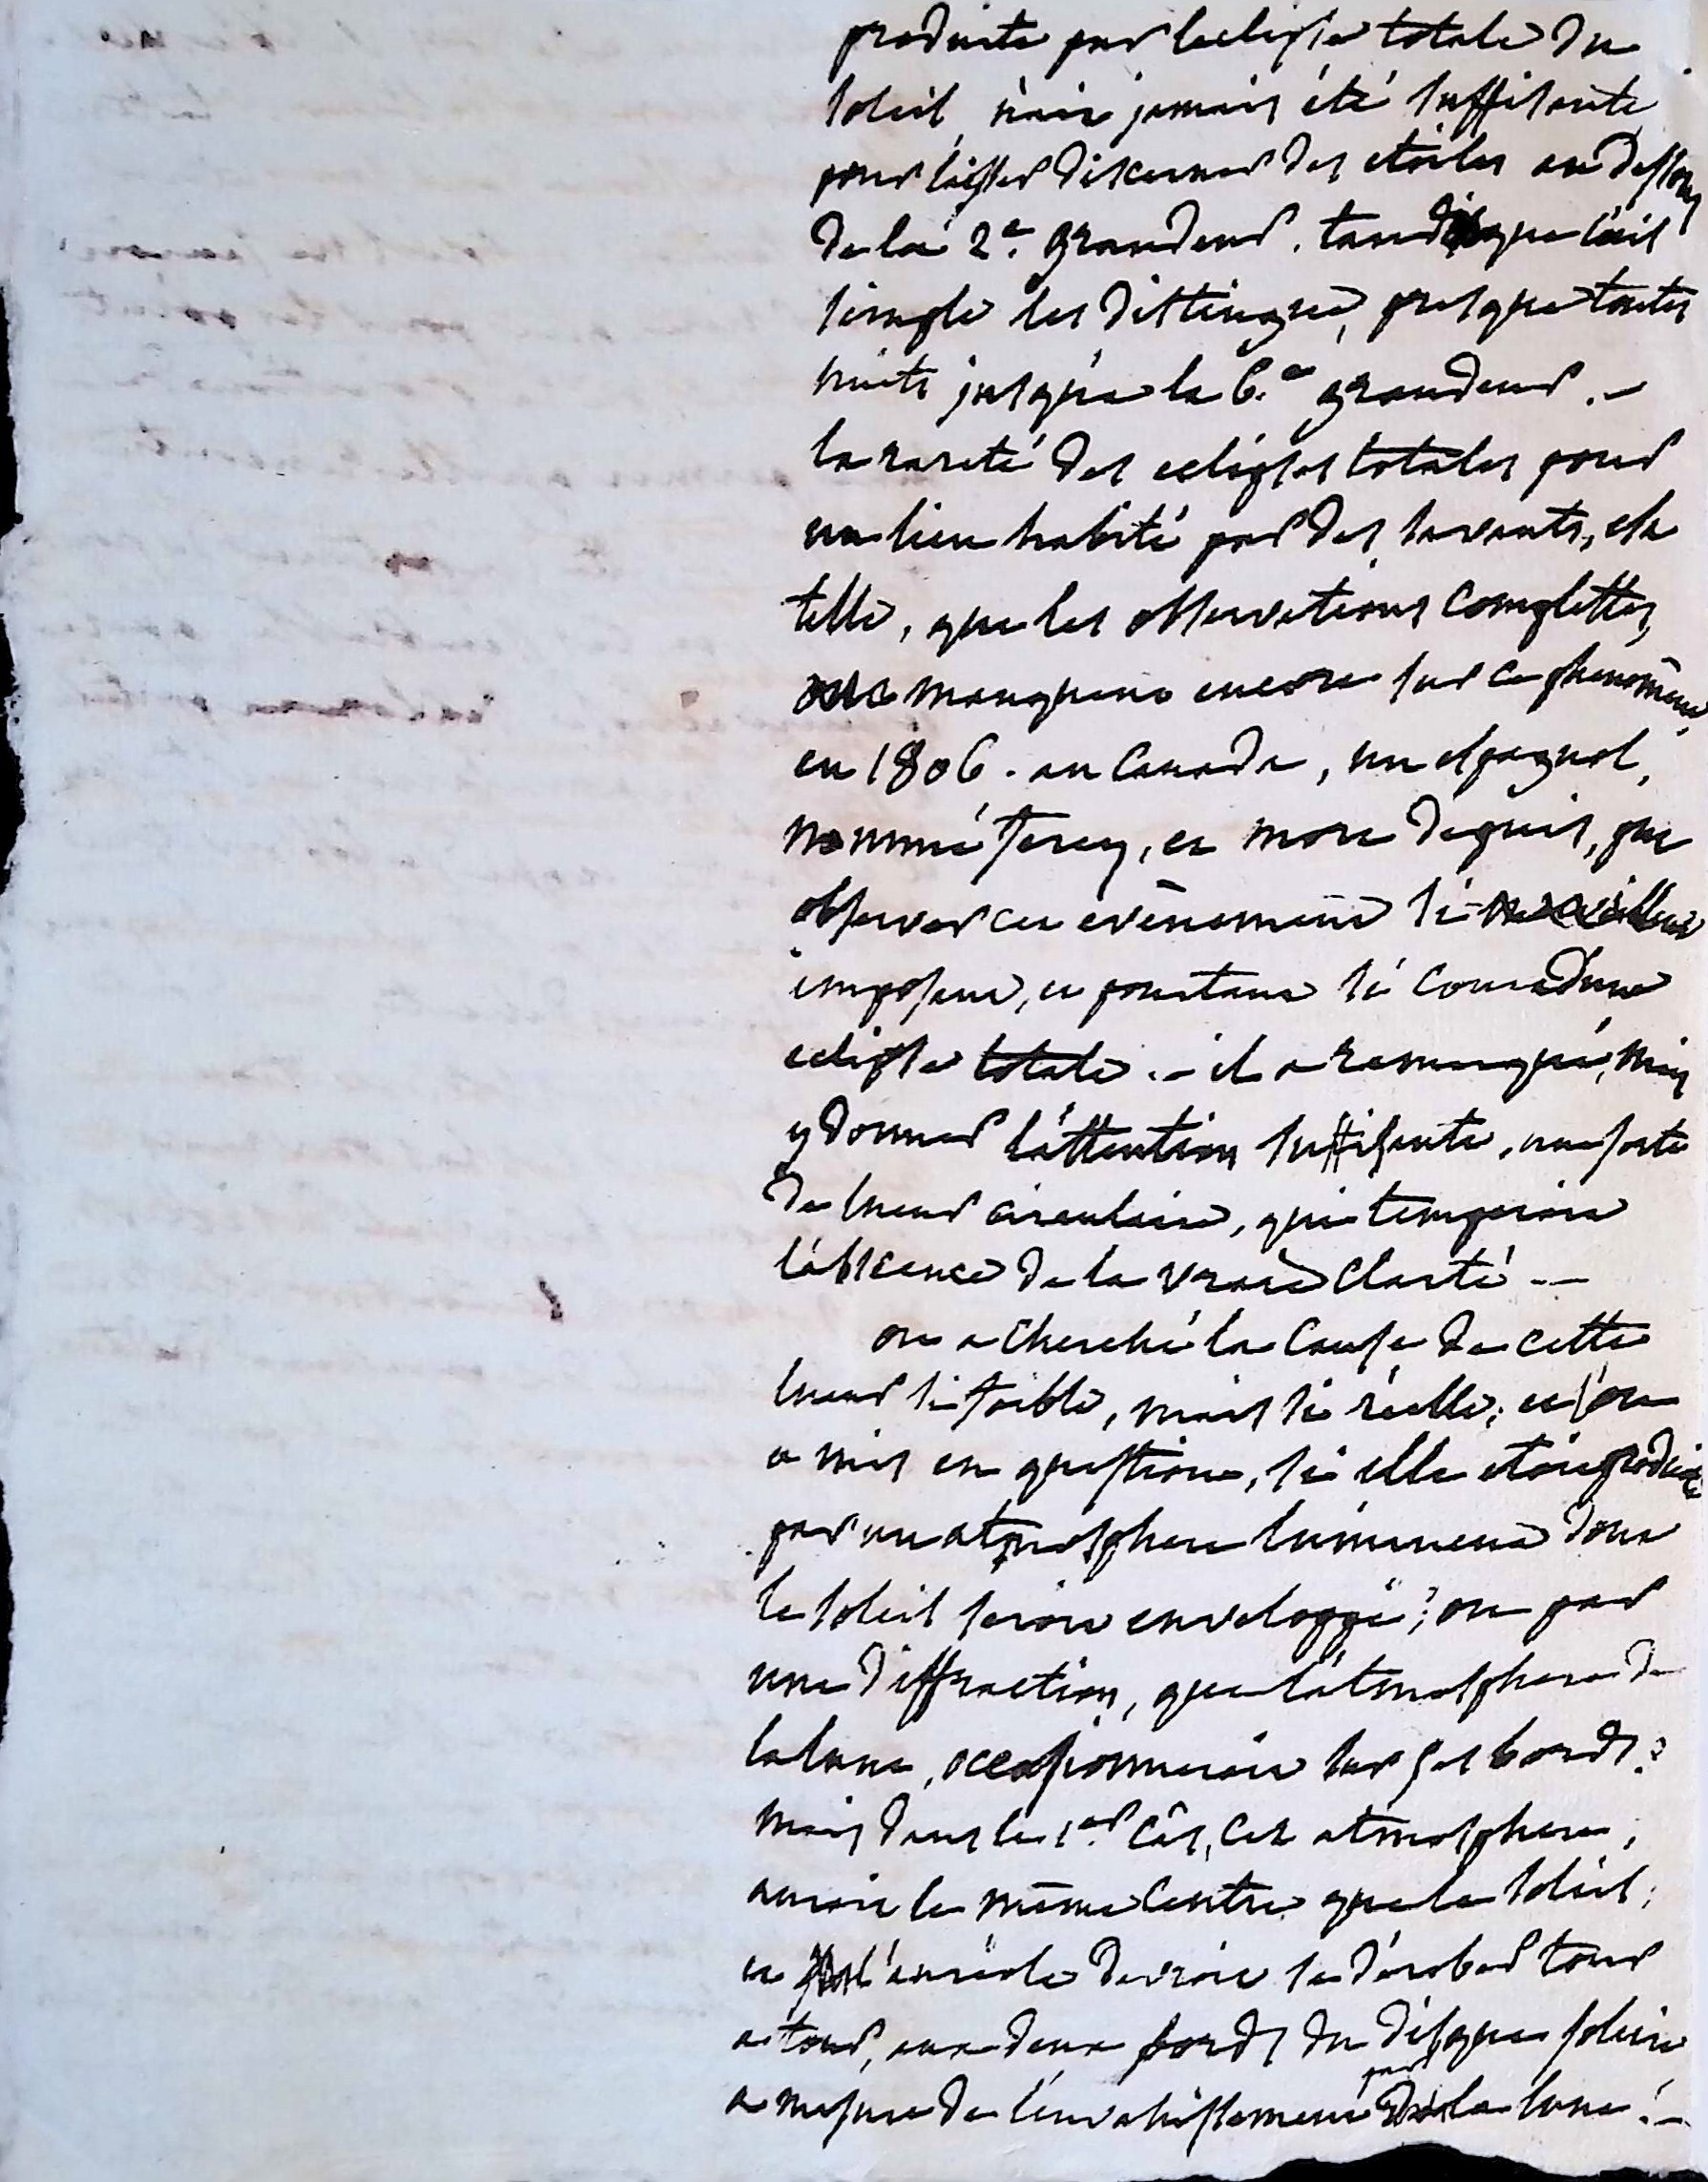 produite par leclipse totale du
soleil, n'ait jamais été suffisante
pour laisser discerner des etoiles au dessous
de la 2e. grandeur. tandis que l'œil
simple les distingue, presque toutes
nuits jusqu'a la 6.e grandeur. –
la rareté des eclipses totales pour
un lieu habité par des savants, est
telle, que les observations complettes,
manquent encore sur ce phenomène,
en 1806. au Canada, un espagnol,
nommé ferey, et mort depuis, put
observer cet evènement si
imposant, et pourtant si court d'une
eclipse totale. – il a remarqué, mais
y donner l'attention suffisante, une sorte
de lueur circulaire, qui temperoit
l'abscence de la vraie clarté. —
on a cherché la cause de cette
lueur si foible, mais si réelle; et l'on
a mis en question, si elle etoit produite
par un atmosphere lumineux dont
le soleil seroit enveloppé?; ou par
une diffraction, que l'atmosphere de
la lune, occasionneroit sur ses bords?
mais dans le 1.er câs, cet atmosphere,
auroit le même centre que le soleil;
et l'aureole devroit se dérober tour
a tour, aux deux bords du disque solaire
a mesure de l'envahissement par la lune! –